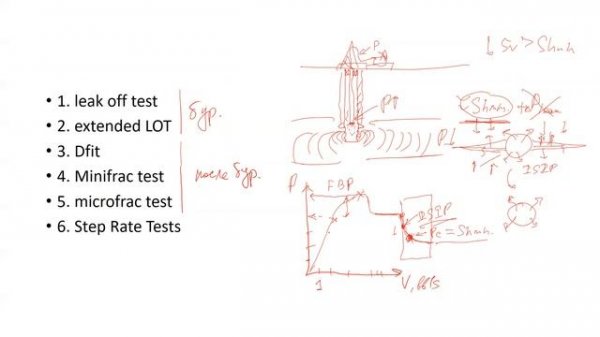 • 1. leak off test
• 2. extended LOT
• 3. Dfit
• 4. Minifrac test
• 5. microfrac test
• 6. Step Rate Tests
бур.
после бур.
P
Sv > Shmin
P↑
Shmin
ISIP
P
FBP
ISIP
Pc = Shmin
1
V, bbls